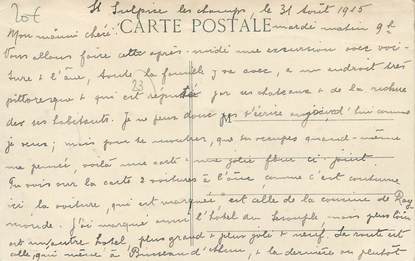 20€
St Sulpice les champs, le 31 Août 1915
CARTE POSTALE
mardi matin 9h
Mon mémini chéri
Nous allons faire cette après-midi une excursion avec voi-
ture à l'âne, toute la famille y va avec, à un endroit très
pittoresque & qui est réputé par ses chateaux & de la richesse
23
M
des ses habitants. Je ne peux donc pas t'écrire aujourd'hui comme
je veux; mais pour te montrer, que tu occupes quand-même
ma pensée, voilà une carte & une jolie fleur ci-joint.
Tu vois sur la carte 2 voitures à l'âne, comme c'est coutume
ici la voiture, qui est marquée, est celle de la cousine de Ray-
monde. J'ai marqué aussi l'hotel du mais plus loin
est un autre hotel plus grand & plus joli & neuf. La route est
celle, qui mène à Busseau d'Ahun, & la dernière ou plutôt